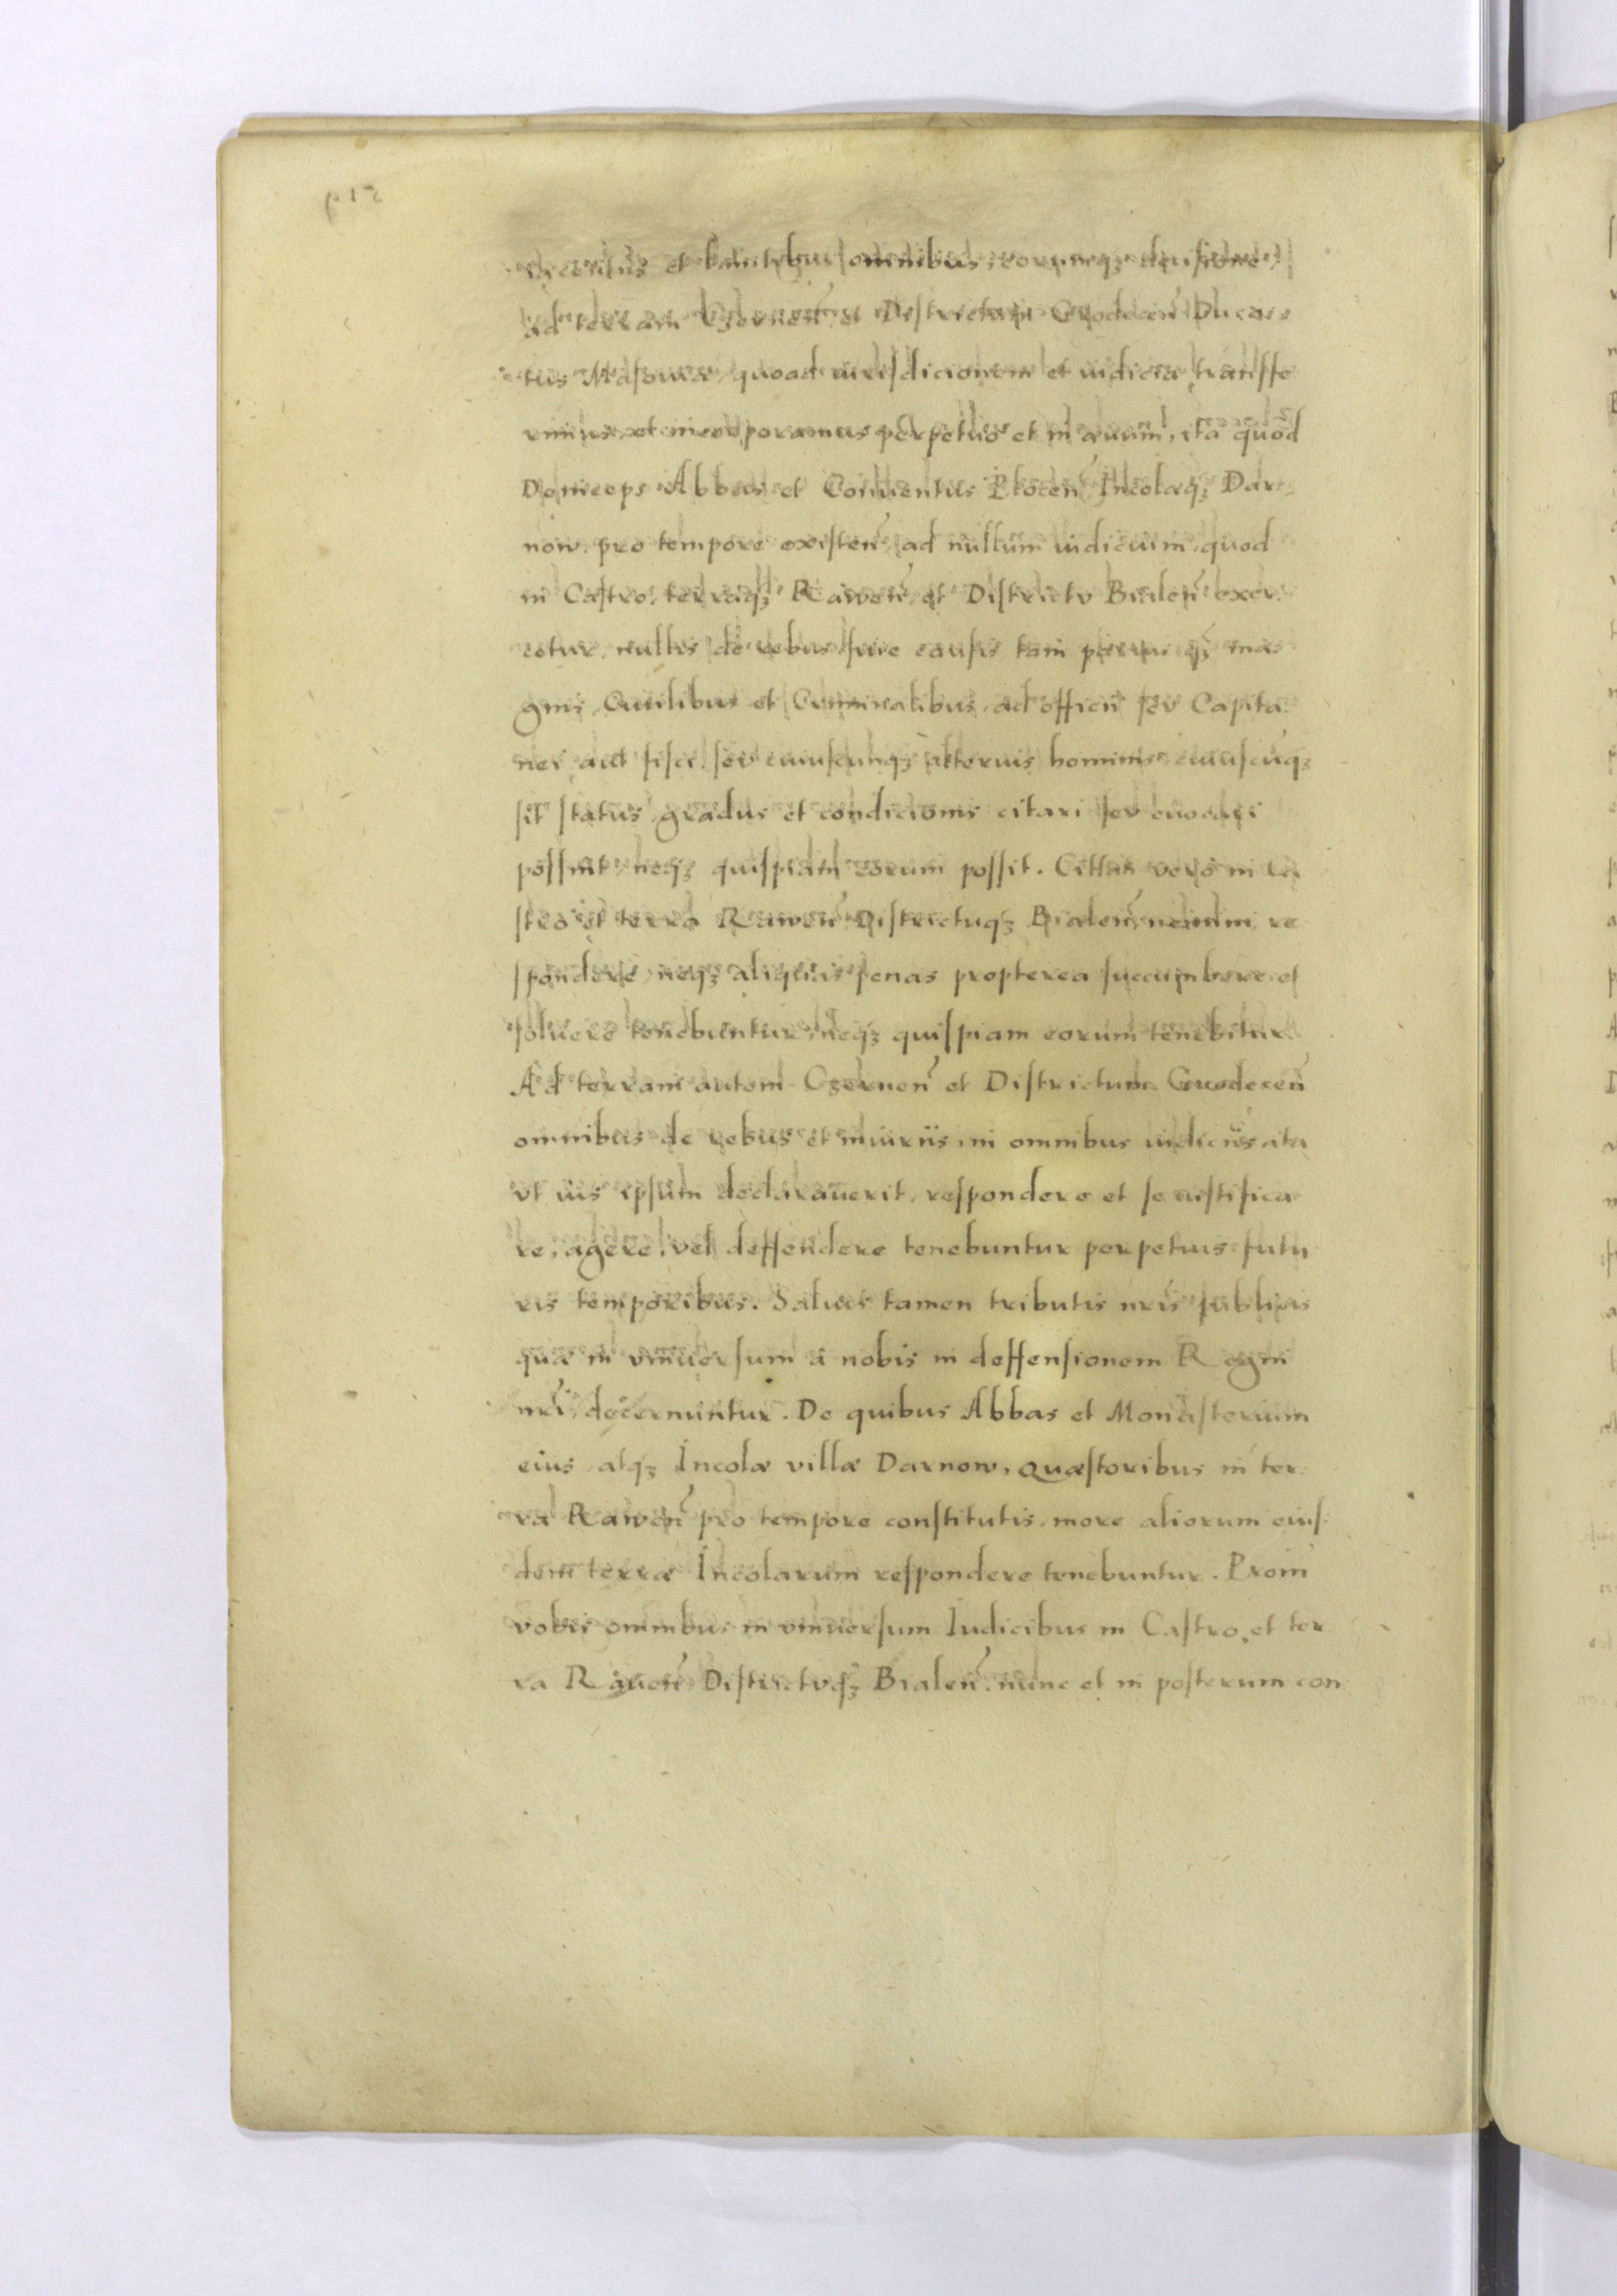 et limitibus omnibus, eorumqꝫ
ad terram Czernen̄ et Districtum Grodecen̄ Duca
tus Masouiæ, quoad iurisdicionem et iudicia transffe
rimus, et incorporamus perpetuo et in æuum, ita quod
Deinceps Abbas et Conuentus Plocen̄ Incolæqꝫ Dar
now, pro tempore existen̄, ad nullum iudicium, quod
in Castro, terraqꝫ Rawen̄, et Districtu Bialen̄ exer
cetur, nullis de rebus siue causis tam paruis qꝫ ma
gnis, Ciuilibus et Criminalibus, ad officii seu Capita
nei aut fisci, seu cuiuscunqꝫ alterius hominis cuiuscūqꝫ
sit status gradus et condicionis citari seu euocari
possint, neqꝫ quispiam eorum possit. Citati vero in Ca
stro et terra Rawen̄ Districtuqꝫ Bialen̄, nemini re
spondere, neqꝫ aliquas penas propterea succumbere et
soluere tenebuntur, neqꝫ quispiam eorum tenebitur
Ad terram autem Czernen̄ et Districtum Grodecen̄
omnibus de rebus et iniuriis, in omnibus iudiciis ita
vt ius ipsum declarauerit, respondere et se iustifica
re, agere, vel deffendere tenebuntur perpetuis futu
ris temporibus. Saluis tamen tributis nr̄is publicis
quæ in vniuersum a nobis in deffensionem Regni
nr̄i decernuntur. De quibus Abbas et Monasterium
eius atqꝫ Incolæ villæ Darnow, quæstoribus in ter
ra Rawen̄ pro tempore constitutis, more aliorum eius
dem terræ Incolarum respondere tenebuntur. Proin
vobis omnibus in vniuersum Iudicibus in Castro, et ter
ra Rauen̄ Districtuqꝫ Bialen̄ nunc et in posterum con